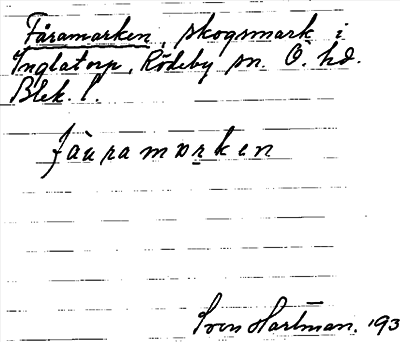 Fåramarken, skogsmark i
Inglatorp, Rödeby sn. Ö. hd.
Blek. l.
fàuramarken
Sven Hartman. 193